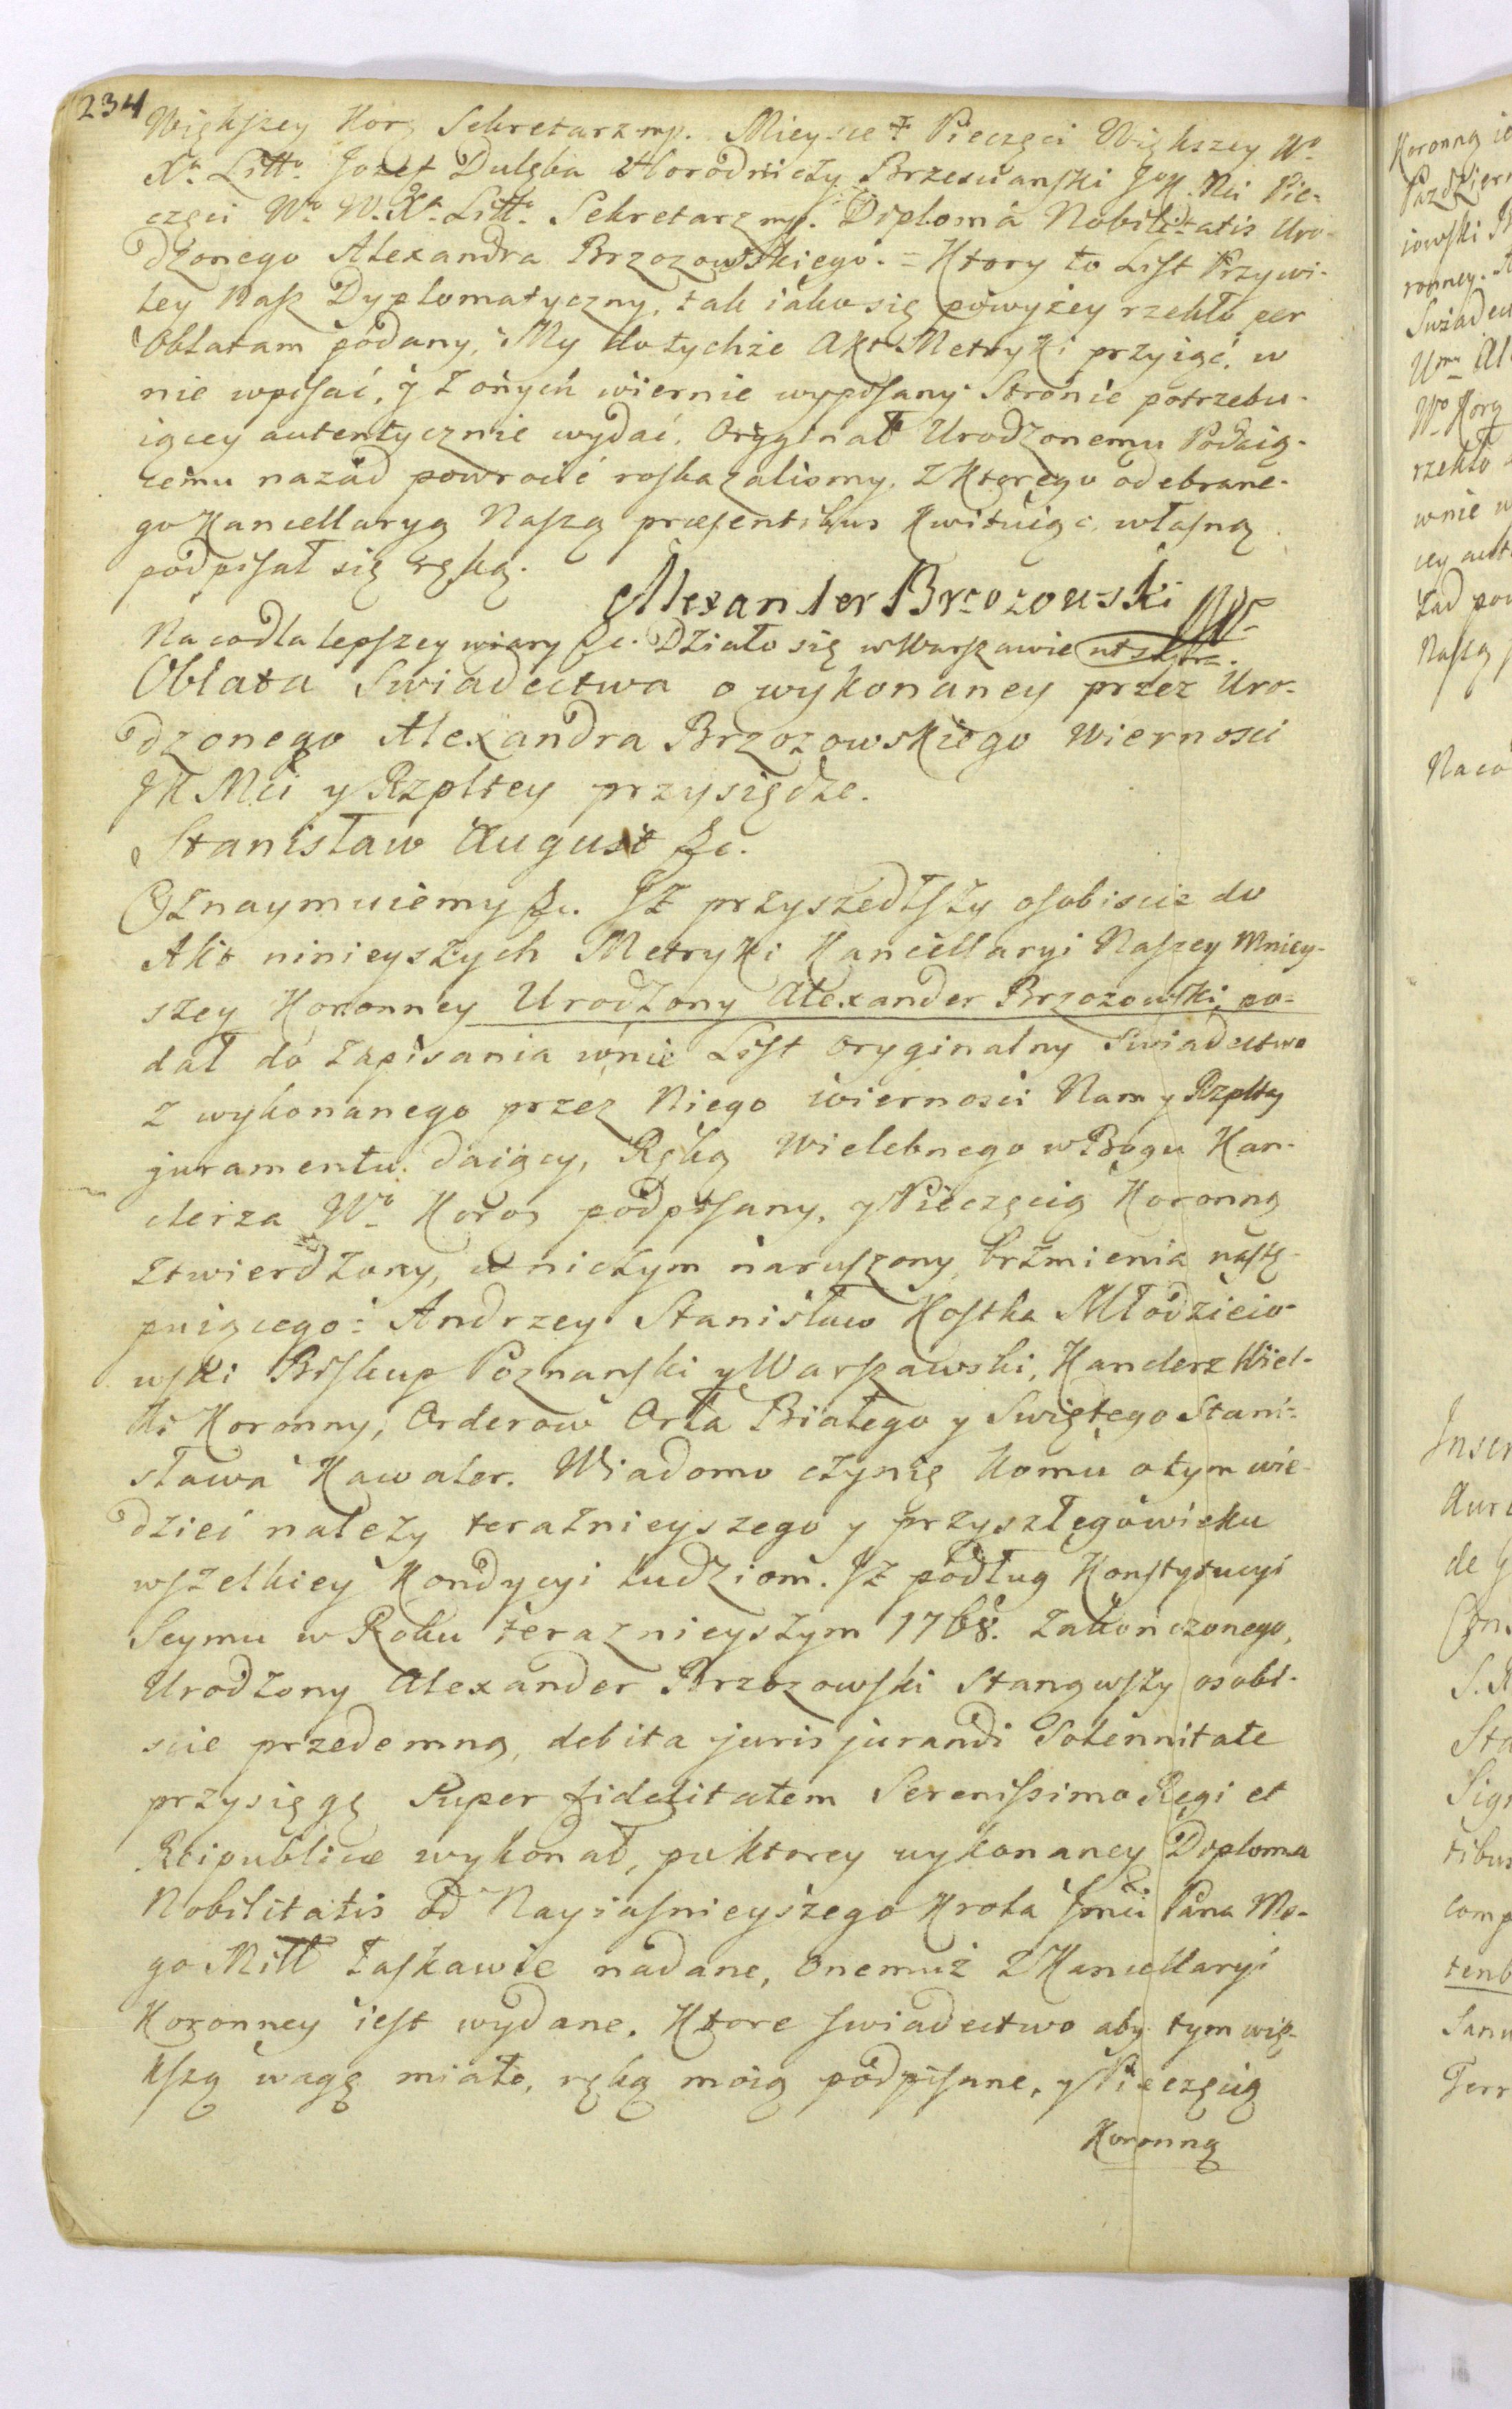 234
Większey Korǫ Sekretarz mp. Mieysce ‡ Pieczęci Większey Wo.
Xa. Litto. Jozef Dulęba Horodniczy Brzescianski JKMci Pie-
częci Wo W. Xa. Litto. Sekretarz mp. Diploma Nobilitatis Uro-
dzonego Alexandra Brzozowskiego. = Ktory to List Przywi-
ley Nasz Dyplomatyczny, tak iako się powyżey rzekło per
Oblatam podany, My do tychże Akt Metryki przyiąć, w
nie wpisać, y z onych wiernie wypisany Stronie potrzebu-
iącey autentycznie wydać, Oryginał Urodzonemu Podaią-
cemu nazad powrocić roskazalismy, z Ktorego odebrane-
go Kancellaryą Naszą præsentibus Kwituiąc, własną
podpisał się ręką.
Alexander Brzozowski mp
Na co dla lepszey wiary &c. Działo się w Warszawie ut supra.
Oblata Swiadectwa o wykonaney przez Uro-
dzonego Alexandra Brzozowskiego Wiernosci
JK Mci y Rzpltey przysiędze.
Stanisław August &c.
Oznaymuiemy &c. Iż przyszedłszy osobiscie do
Akt ninieyszych Metryki Kancellaryi Naszey Mniey-
szey Koronney Urodzony Alexander Brzozowski, po-
dał do zapisania w nie List oryginalny Swiadectwo
z wykonanego przez Niego wiernosci Nam y Rzpltey
juramentu daiący, Ręką Wielebnego w Bogu Kan-
clerza Wo Koroǫ podpisany, y Pieczęcią Koronną
ztwierdzony, w niczym naruszony, brzmienia nastę-
puiącego: Andrzey Stanisław Kostka Młodzieio-
wski Biskup Poznanski y Warszawski, Kanclerz Wiel-
ki Koronny, Orderow Orła Białego y Swiętego Stani-
sława Kawaler. Wiadomo czynię komu o tym wie-
dzieć należy teraznieyszego y przyszłego wieku
wszelkiey Kondycyi ludziom. Iż podług Konstytucyi
Seymu w Roku teraznieyszym 1768. zakończonego,
Urodzony Alexander Brzozowski stanąwszy osobi-
scie przedemną, debita jurisjurandi Solennitate
przysięgę Super fidelitatem Serenissimo Regi et
Reipublicæ wykonał, po ktorey wykonaney Diploma
Nobilitatis od Nayiasnieyszego Krola Jmci Pana Me-
go Mitt łaskawie nadane, onemuż z Kancellaryi
Koronney iest wydane. Ktore swiadectwo aby tym wię-
kszą wagę miało, ręką moią podpisane, y Pieczęcią
Koronną